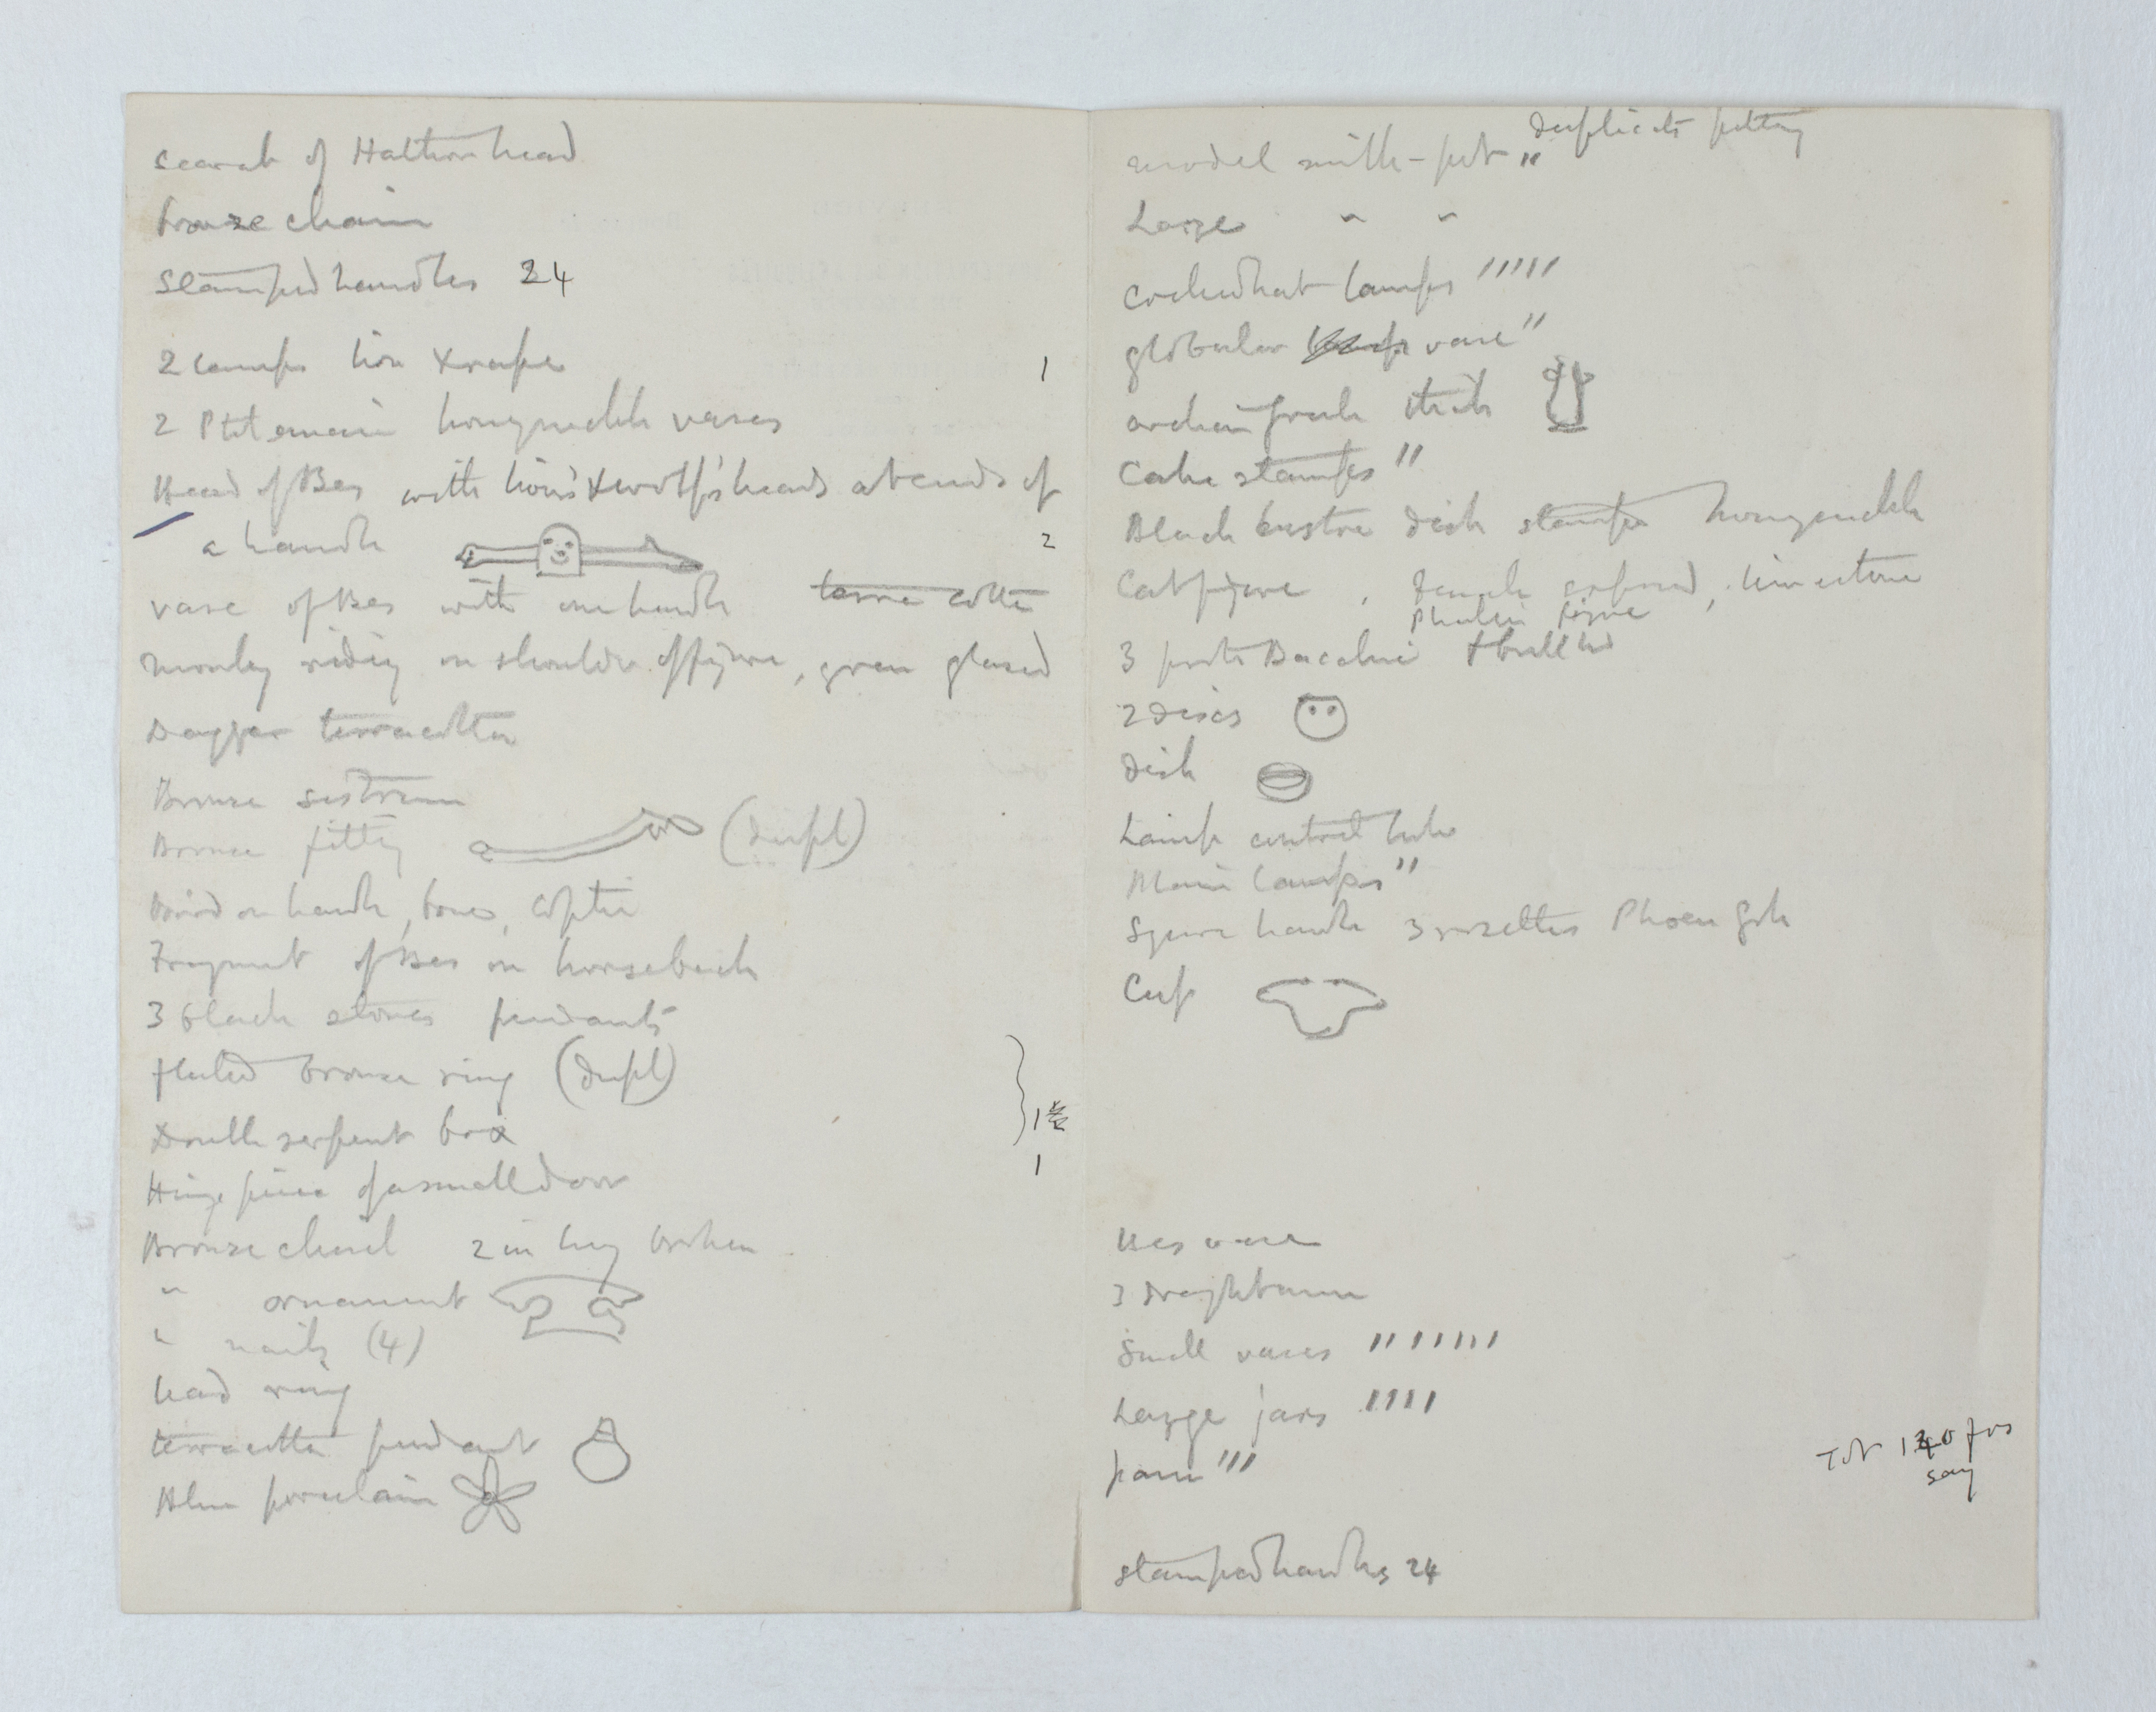 Scarab of Hathor head
bronze chain
Stamped handles 24
2 lamps lion & rape
1
2 Ptolemaic honeysuckle vases
Head of Bes with lion's & wolf's heads at ends of
a handle
2
vase of Bes with one handle terra cotta
monkey riding on shoulder of figure, green glazed
Dagger terracotta
Bronze sistrum
Bronze fitting (dupl)
Bird on handle, bones, Coptic
Fragment of Bes on horseback
3 black stones pendants
fluted bronze ring (dupl)
Double serpent box
1
Hinge piece of a small door
1
Bronze chisel 2 in long broken
" ornament
" nails (4)
lead ring
terracotta pendant
Blue porcelain
duplicate pottery
model milk-pot "
Large " "
Cocked hat lamps '''''
globular vase "
archaic Greek
Cake stamps "
Black lustre dish stamps honeysuckle
Cat figure, female, limestone
Phallic figure
3 pots Bacchic
2 discs
dish
Lamp central tube
Main lamps "
Square handle 3 rosettes Phoen Grk
Cup
Bes vase
3 draughtsmen
Small vases ''''''''
Large jars ''''
pans '''
Tot 140 frs
say
stamped handles 24